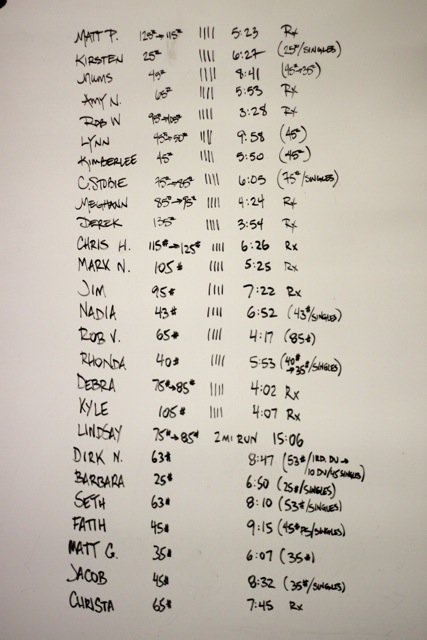 MATT P. 125#→115# |||| 5:23 Rx
KIRSTEN 25# |||| 6:27 (25#/SINGLES)
MUMS 45# |||| 8:41 (45#→35#)
AMY N. 65# |||| 5:53 Rx
ROB W 95#→105# |||| 3:28 Rx
LYNN 45#→50# |||| 9:58 (45#)
KIMBERLEE 45# |||| 5:50 (45#)
C.STOBIE 75#→85# |||| 6:05 (75#/SINGLES)
MEGHANN 85#→95# |||| 4:24 Rx
DEREK 135# |||| 3:54 Rx
CHRIS H. 115#→125# |||| 6:26 Rx
MARK N. 105# |||| 5:25 Rx
JIM 95# |||| 7:22 Rx
NADIA 43# |||| 6:52 (43#/SINGLES)
ROB V. 65# |||| 4:17 (85#)
RHONDA 40# |||| 5:53 (40#→35#/SINGLES)
DEBRA 75#→85# |||| 4:02 Rx
KYLE 105# |||| 4:07 Rx
LINDSAY 75#→85# 2 MI RUN 15:06
DIRK N. 63# 8:47 (53#/1RD. DU→
10 DU/45 SINGLES)
BARBARA 25# 6:50 (25#/SINGLES)
SETH 63# 8:10 (53#/SINGLES)
FATIH 45# 9:15 (45# PS/SINGLES)
MATT G. 35# 6:07 (35#)
JACOB 45# 8:32 (35#/SINGLES)
CHRISTA 65# 7:45 Rx